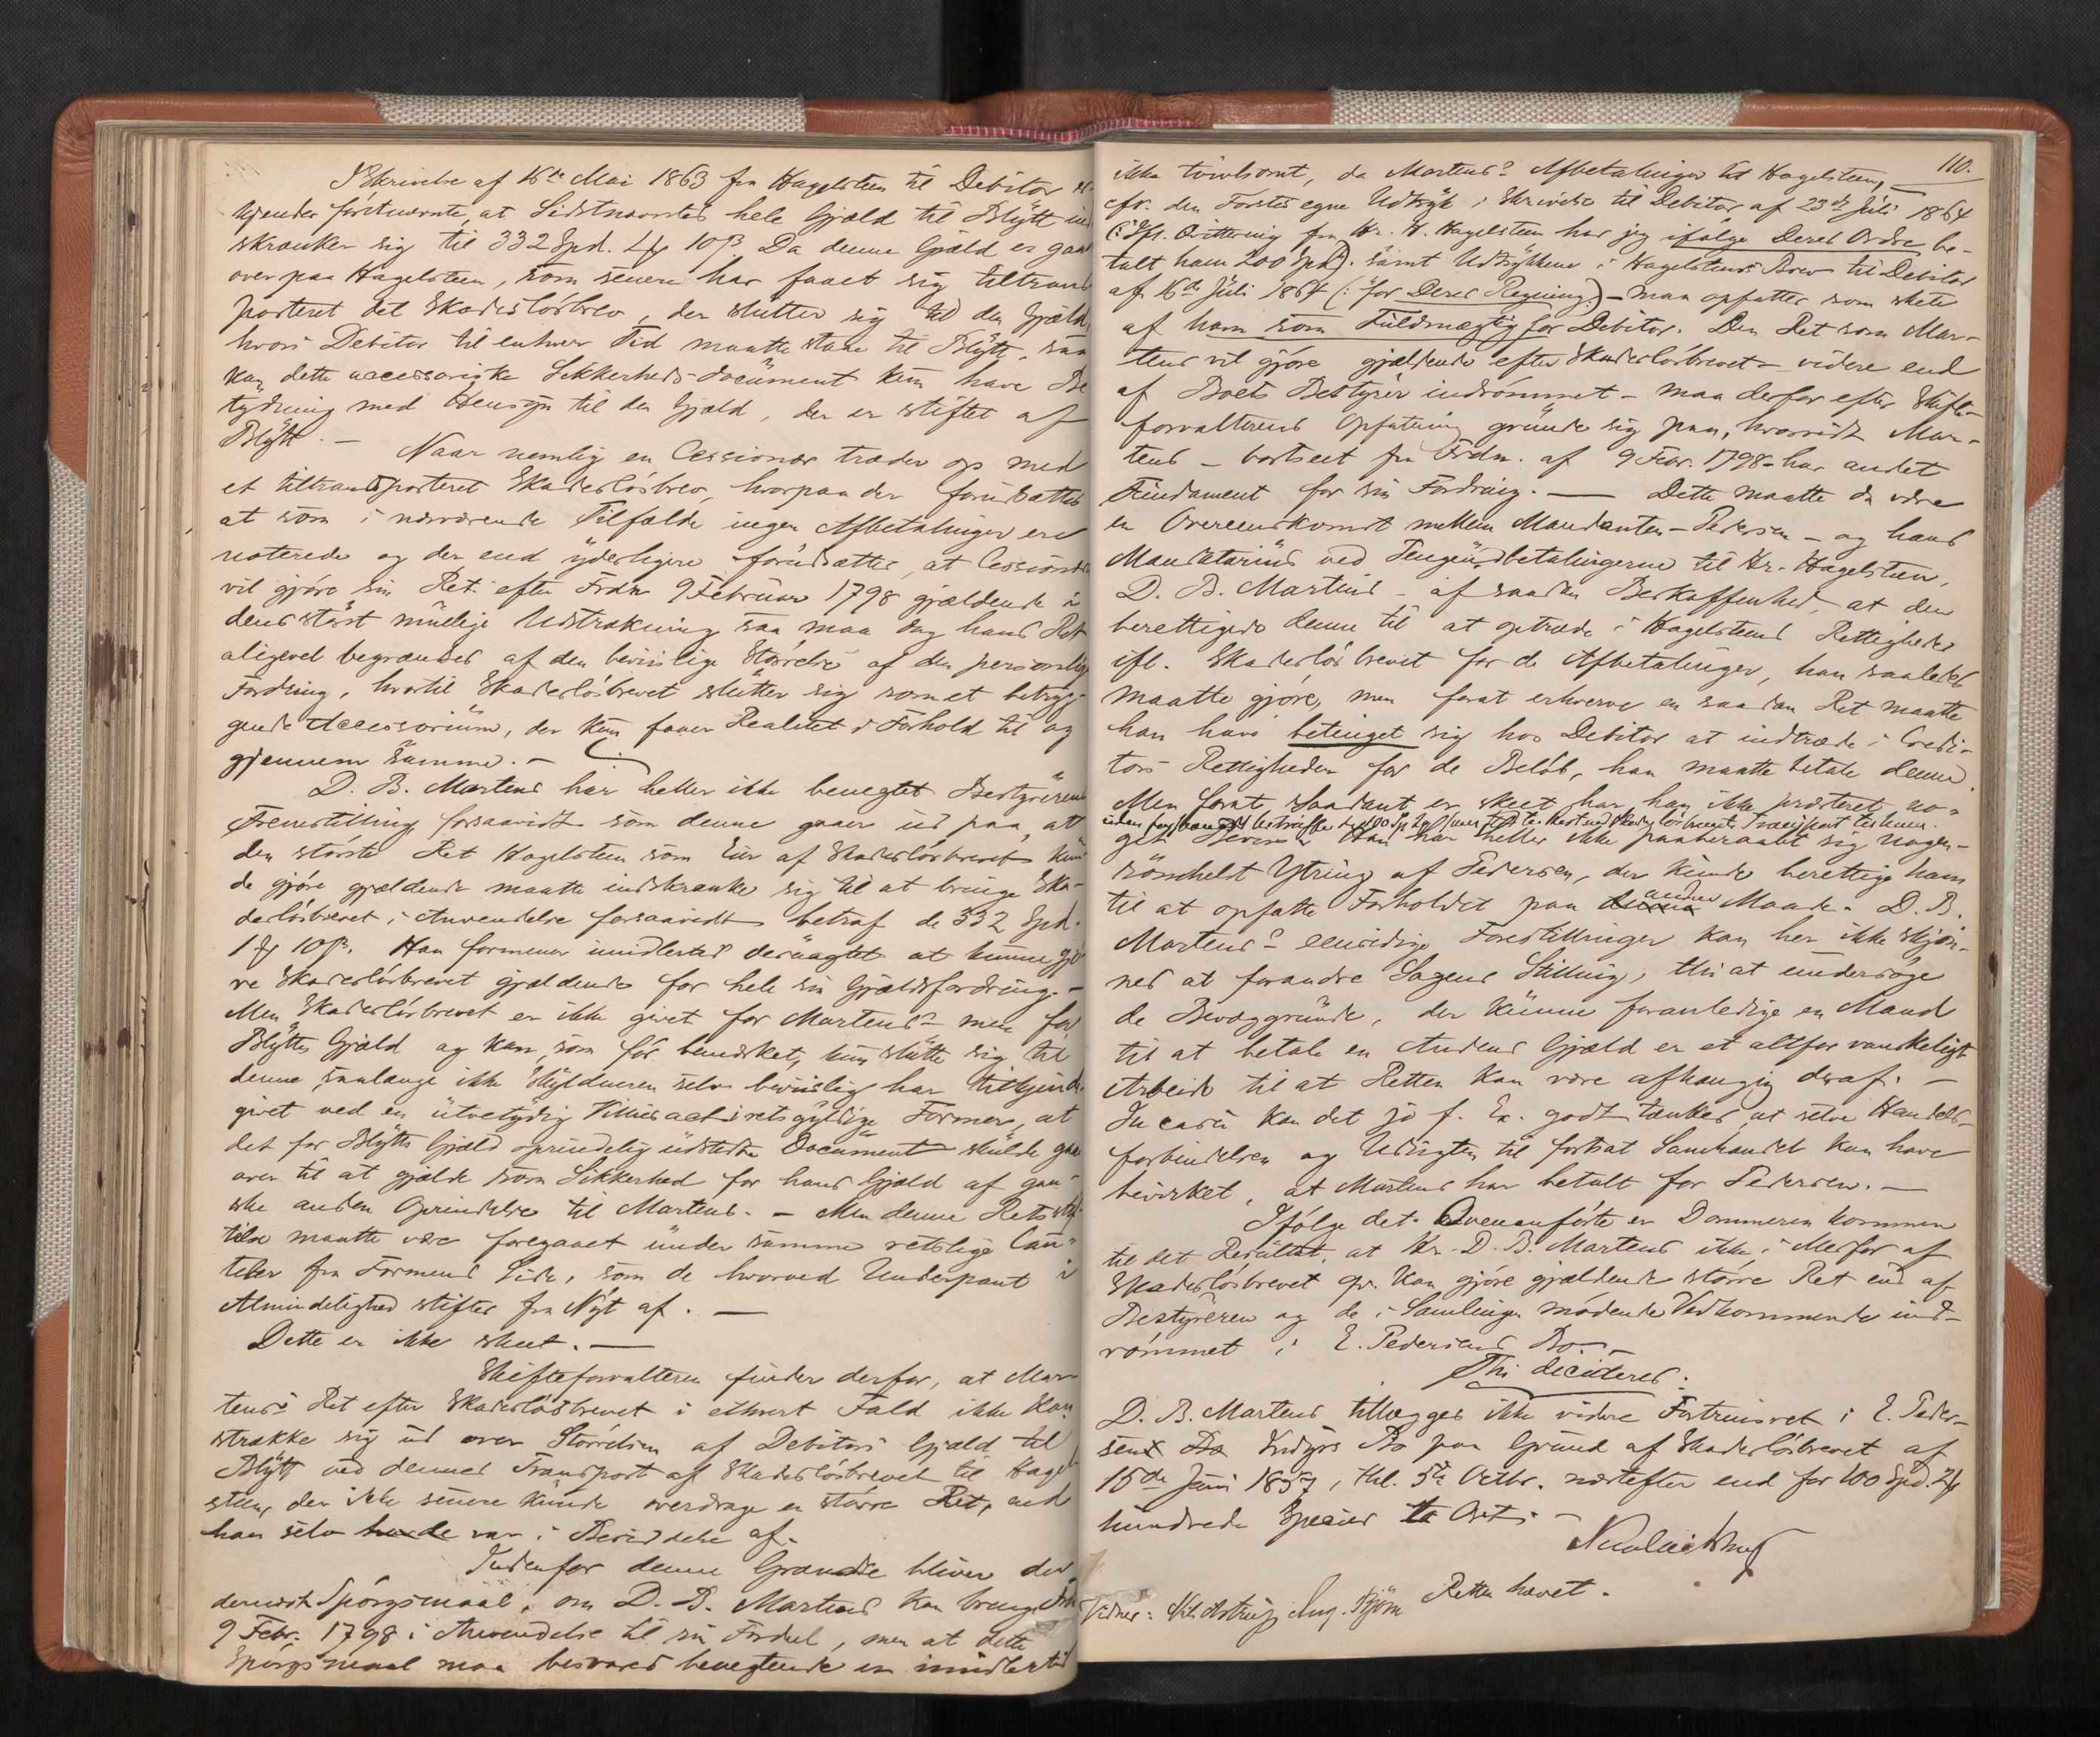 I Skrivelse af 16de Mai 1863 fra Hagelsteen til Debitor er-
kjender førstnævnte, at Sidstnævntes hele Gjæld til Blytt ind
skrænker sig til 332 Spd. 1 ₰ 10 β. Da denne Gjæld er gaaet
over paa Hagelsteen, som senere har faaet sig tiltrans
porteret det Skadesløsbrev, der slutter sig til den Gjæld,
hvori Debitor til enhver Tid maatte staae til Blytt, saa
kan dette accessoriske Sikkerheds-Document kun have Be
tydning med Hensyn til den Gjæld, der er stiftet af
Blytt. —
Naar nemlig en Cessionær træder op med
et tiltransporteret Skadesløsbrev, hvorpaa der forudsættes
at som i nærværende Tilfælde ingen Afbetalinger ere
noterede og der end yderligere forudsættes, at Cessionæren
vil gjøre sin Ret efter Frdn 9 Februar 1798 gjældende i
dens størst mulige Udstrækning saa maa dog hans Ret
aligevel begrændses af den bevislige Størrelse af den personlige
Fordring, hvortil Skadesløsbrevet slutter sig som et betryg-
gende Accessorium, der kun faaer Realitet i Forhold til og
gjennem samme. —
D. B. Martens har heller ikke benegtet Bestyrerens
Fremstilling forsaavidt som denne gaaer ud paa, at
den største Ret Hagelsteen som Eier af Skadesløsbrevet kun
de gjøre gjældende maatte indskrænke sig til at bringe Ska-
desløsbrevet i Anvendelse forsaavidt betraf de 332 Spd.
1 ₰ 10 β. Han formener imidlertid desuagtet at kunne gjø
re Skadesløsbrevet gjældende for hele sin Gjældsfordring. —
Men Skadesløsbrevet er ikke givet for Martens' men for
Blytts Gjæld og kan, som før bemærket, kun slutte sig til
denne saalænge ikke Skyldneren selv beviislig har tilkjende
givet ved en utvetydig Villiesact i retsgyldige Former, at
det for Blytts Gjæld oprindelig udstedte Document skulde gaae
over til at gjælde som Sikkerhed for hans Gjæld af gan-
ske anden Oprindelse til Martens. — Men denne Rets stif-
telse maatte være foregaaet under samme retslige Cau-
teler fra Formens Side, som de hvorved Underpant i
Almindelighed stiftes fra Nyt af. —
Dette er ikke skeet. —
Skifteforvalteren finder derfor, at Mar-
tens' Ret efter Skadesløsbrevet i ethvert Fald ikke kan
strække sig ud over Størrelsen af Debitors Gjæld til
Blytt ved dennes Transport af Skadesløsbrevet til Hagel
steen, der ikke senere kunde overdrage en større Ret, end
han selv havde var i Besiddelse af.
Indenfor denne Grændse bliver der
dernæst Spørgsmaal, om D. B. Martens kan bringe Frdn
9 Febr. 1798 i Anvendelse til sin Fordeel, men at dette
Spørgsmaal maa besvares benegtende er imidlertid
110.
ikke tvivlsomt, da Martens' Afbetalinger til Hagelsteen, —
cfr. den Førstes egne Udtryk i Skrivelse til Debitor af 23de Juli 1864
(: Ifl. Qvittering fra Hr. H. Hagelsteen har jeg ifølge Deres Ordre be-
talt ham 200 Spd). samt Udtrykkene i Hagelsteens Brev til Debitor
af 16de Juli 1864 (: "for Deres Regning") — maa opfattes som skete
af ham som Fuldmægtig for Debitor. Den Ret som Mar-
tens vil gjøre gjældende efter Skadesløsbrevet — videre end
af Boets Bestyrer indrømmet — maa derfor efter Skifte-
forvalterens Opfatning grunde sig paa, hvorvidt Mar-
tens — bortseet fra Frdn. af 9 Febr. 1798 — har andet
Fundament for sin Fordring. — Dette maatte da være
en Overeenskomst mellem Mandanten — Pedersen — og hans
Mandatarius ved Penge-udbetalingerne til Hr. Hagelsteen,
D. B. Martens — af saadan Beskaffenhed, at den
berettigede denne til at optræde i Hagelsteens Rettigheder
ifl. Skadesløsbrevet for de Afbetalinger, han saaledes
maatte gjøre, men forat erhverve en saadan Ret maatte
han have betinget sig hos Debitor at indtræde i Credi-
tors Rettigheder for de Beløb, han maatte betale denne.
Men forat Saadant er skeet har han ikke præsteret no-
get Beviis. Han har heller ikke paaberaabt sig nogen-
somhelst Ytring af Pedersen, der kunde berettige ham
til at opfatte Forholdet paa anden Maade. D. B.
Martens' eensidige Forestillinger kan her ikke skjøn-
nes at forandre Sagens Stilling, thi at undersøge
de Bevæggrunde, der kunne foranledige en Mand
til at betale en Andens Gjæld er et altfor vanskeligt
Arbeide til at Retten kan være afhængig deraf. —
In casu kan det jo f. Ex. godt tænkes, at selve Handels-
forbindelsen og Udsigten til fortsat Samhandel kan have
bevirket, at Martens har betalt for Pedersen. —
Ifølge det Ovenanførte er Dommeren kommen
til det Resultat, at Hr. D. B. Martens ikke i Medfør af
Skadesløsbrevet qv. kan gjøre gjældende større Ret end af
Bestyreren og de i Samlingen mødende Vedkommende ind-
rømmet i E. Pedersens Bo. —
Thi decideres:
D. B. Martens tillægges ikke videre Fortrinsret i E. Peder-
sens Indgivs Bo paa Grund af Skadesløsbrevet af
15de Juni 1857, thl. 5te Octbr. næstefter end for 100 Spd. 2 ₰
hundrede Species to Ort. —
Retten hævet.
Vidner: Nils Astrup Aug. Bjørn